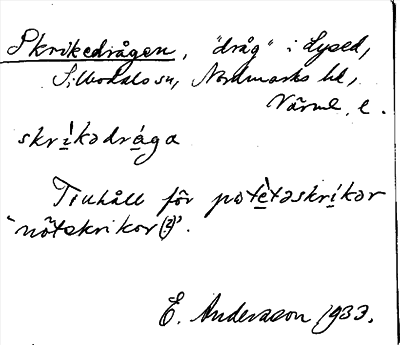 Skrikedrågen, "dråg" i Lysed,
Silbodals sn, Nordmarks hd,
Värml. l.
skrìkədrága
Tillhåll för potètəskríkər
"nötskrikor(?)".
E. Andersson 1933.